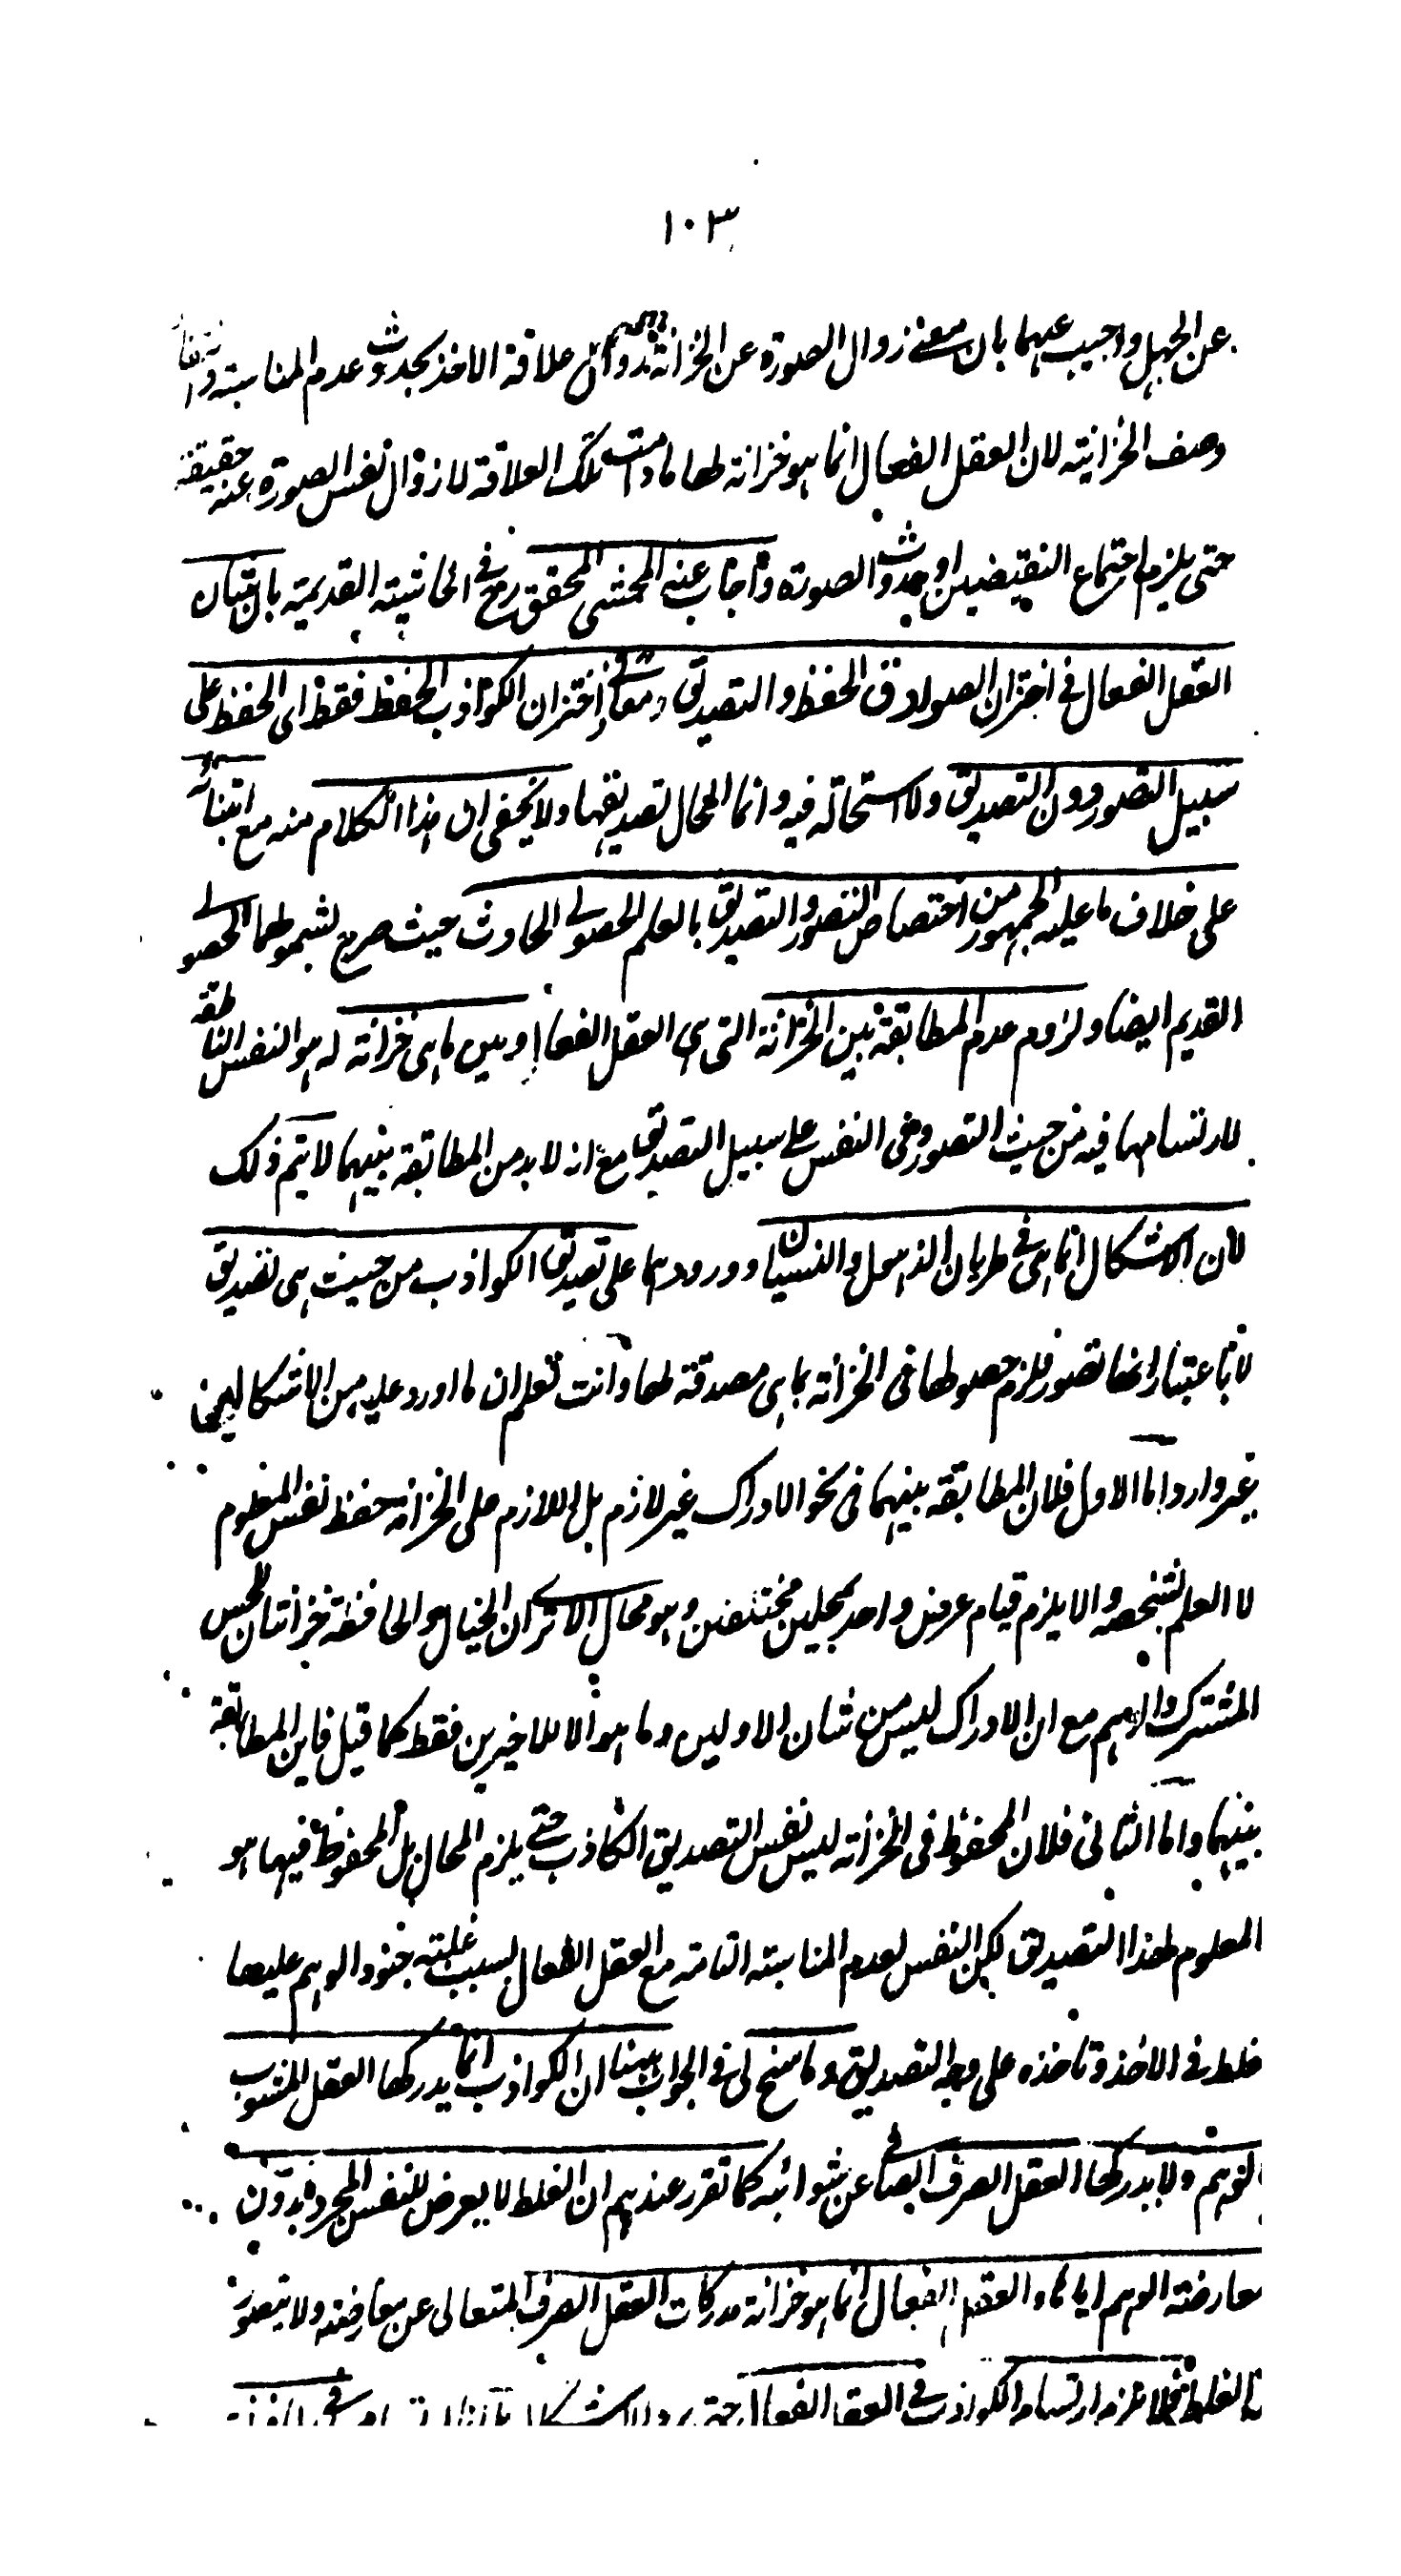 ١٠٣
عن الجهل واجيب عنهما بان معنى زوال الصورة عن الخزانة زوال علاقة الاخذ بحدوث عدم المناسبة و
وصف الخزانية لان العقل الفعال انما هو خزانة لها ما دامت تلك العلاقة لا زوال نفس الصورة عنه حقيقة
حتى يلزم اجتماع النقيضين او حدوث الصورة واجاب عنه المحشي المحقق رح في الحاشية القديمة بان شان
العقل الفعال في اختزان الصوادق الحفظ والتصديق معا و في اختزان الكواذب الحفظ فقط اى الحفظ على
سبيل التصور دون التصديق ولا استحالة فيه وانما المحال تصديقها ولا يخفى ان هذا الكلام منه مع ابتنائه
على خلاف ما عليه الجمهور من اختصاص التصور والتصديق بالعلم الحصولى الحادث حيث صرح بشمولهما الحصولى
القديم ايضا ولزوم عدم المطابقة بين الخزانة التى هى العقل الفعال وبين ما هى خزانة له هو النفس الناطقة
لارتسامها فيه من حيث التصور وفى النفس على سبيل التصديق مع انه لا بد من المطابقة بينهما لا يتم ذلك
لان الاشكال انما هى فى طريان الذهول والنسيان وورودهما على تصديق الكواذب من حيث هى تصديق
لا باعتبار انها تصور فلزم حصولها فى الخزانة بما هى مصدقة لها وانت تعلم ان ما اورد عليه من الاشكالين
غير وارد اما الاول فلان المطابقة بينهما فى نحو الادراك غير لازم بل اللازم على الخزانة حفظ نفس المعلوم
لا العلم بشخصه والا يلزم قيام عرض واحد بمحلين مختلفين وهو محال الا ترى ان الخيال والحافظة خزانتان للحس
المشترك والوهم مع ان الادراك ليس من شان الاولين وما هو الا للاخيرين فقط كما قيل فاين المطابقة
بينهما واما الثانى فلان المحفوظ فى الخزانة ليس نفس التصديق الكاذب حتى يلزم المحال بل المحفوظ فيها هو
المعلوم لهذا التصديق لكن النفس لعدم المناسبة التامة مع العقل الفعال بسبب غلبة جنود الوهم عليها
غلط فى الاخذ وتاخذه على وجه التصديق وما سنح لى فى الجواب ههنا ان الكواذب انما يدركها العقل المشوب
بالوهم ولا يدركها العقل الصرف الصافى عن شوائبه كما تقرر عندهم ان الغلط لا يعرض للنفس المجردة بدون
معارضة الوهم اياها والعقل الفعال انما هو خزانة مدركات العقل الصرف المتعالى عن معارضته ولا يتصور
الغلط فلا يلزم ارتسام الكواذب فى العقل الفعال حتى يرد الاشكال